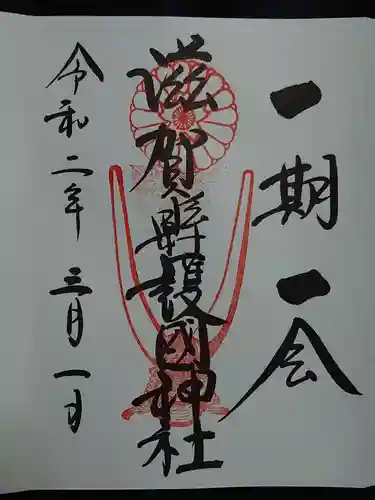 一期一会
滋賀縣護國神社
令和二年三月一日